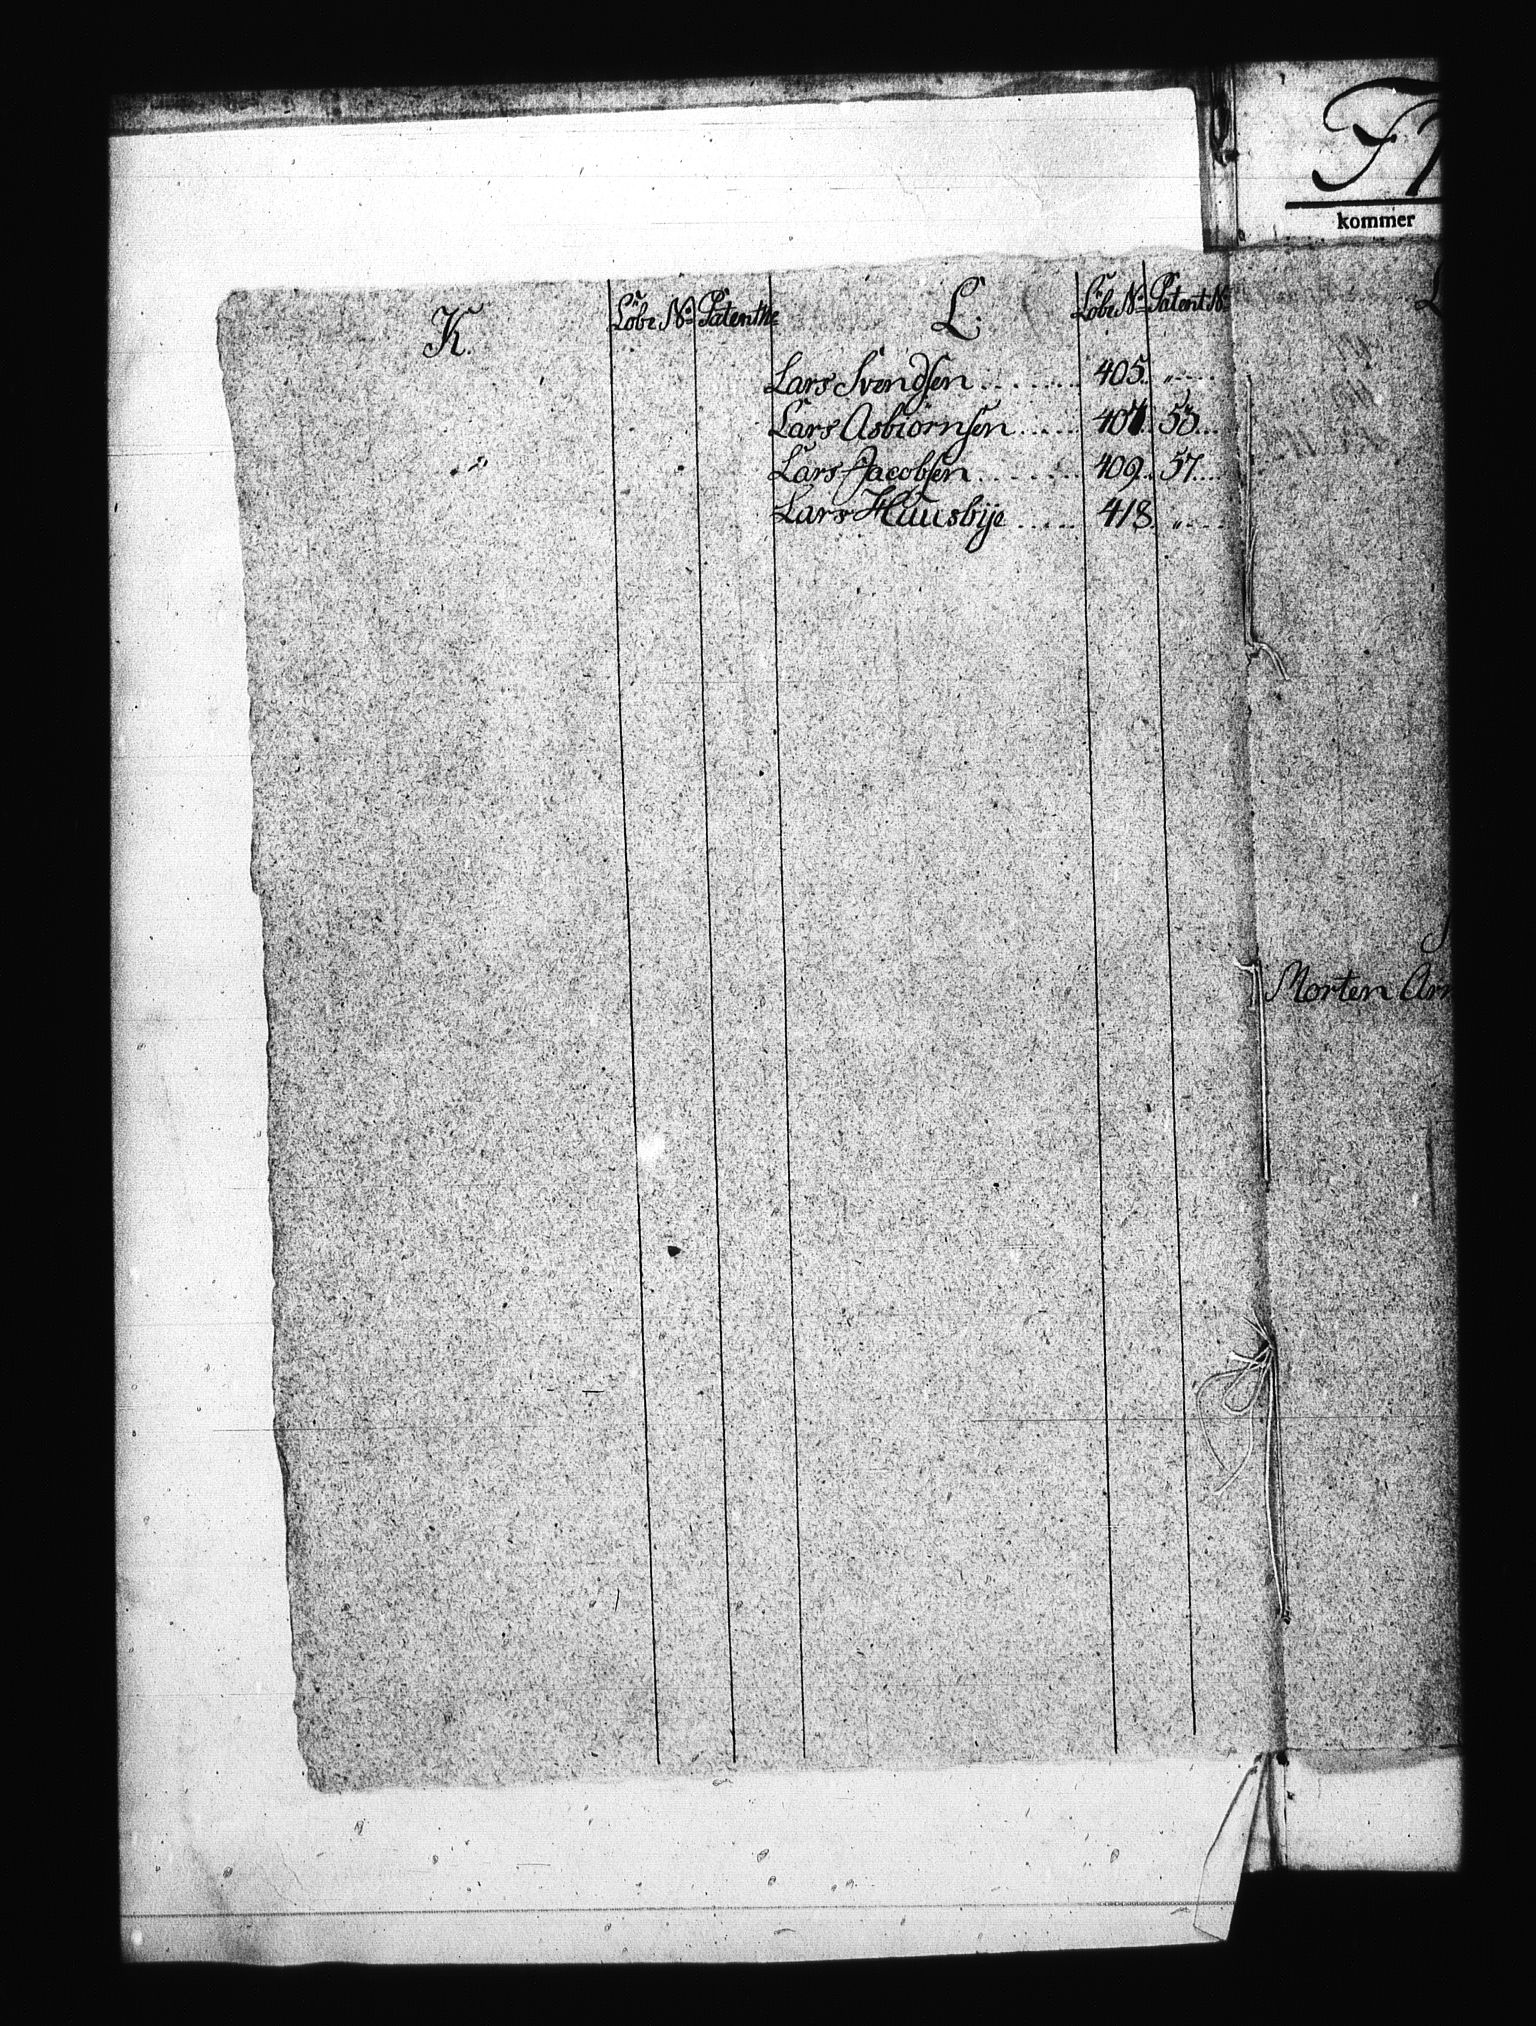 K. Löbe No Patent No L: Löbe No Patent No
Lars Svendsen ........ 405. „.....
Lars Asbiörnsen ..... 407.. 53...
Lars Jacobsen ....... 409.. 57....
Lars Huusbÿe ..... 418. „....
kommer
Morten